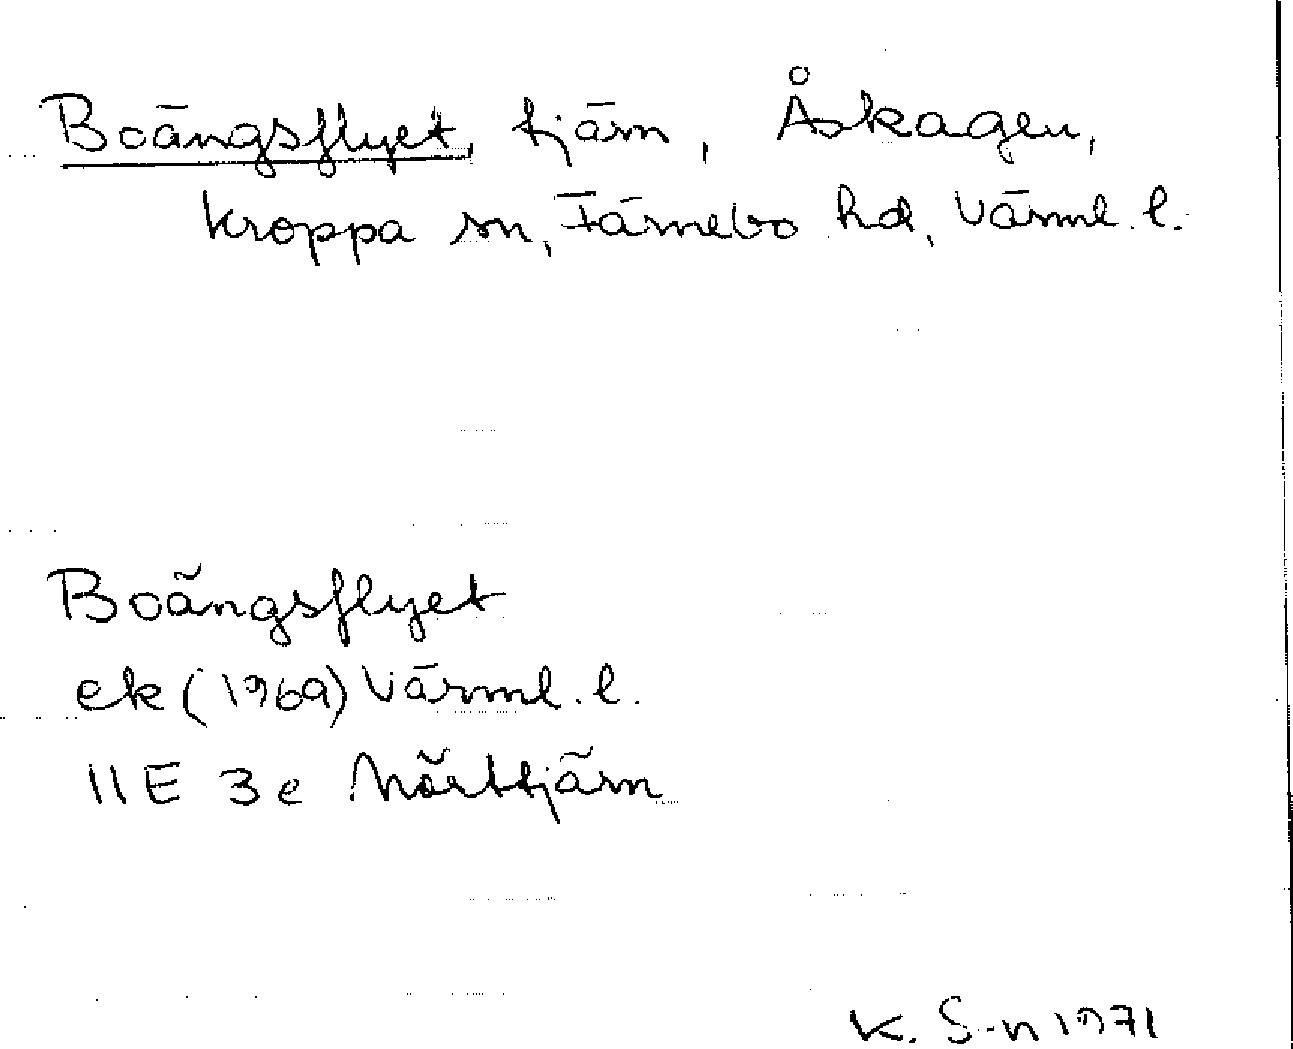 Boängsflyet, tjärn, Åskagen,
Kroppa sn, Färnebo hd, Värml. l.
Boängsflyet
ek (1969) Värml. l.
11E 3e Mörttjärn
K. S-n 1971